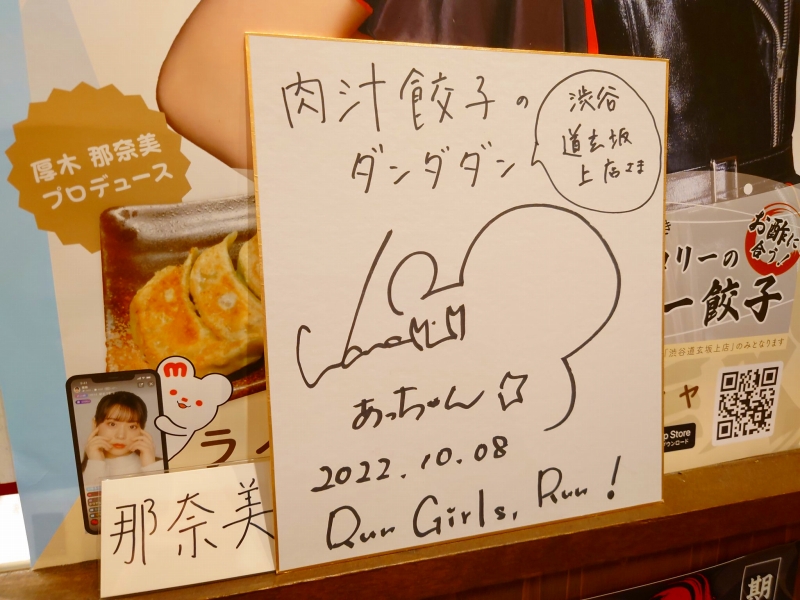 肉汁餃子の
ダンダダン
渋谷
道玄坂
上店さま
Nanami
あっちゃん☆
2022.10.08
Run Girls, Run!
那奈美
厚木 那奈美
プロデュース
お酢に
合う!
リーの
ー餃子
「渋谷道玄坂上店」のみとなります
ヤ
p Store
ラ
m
期